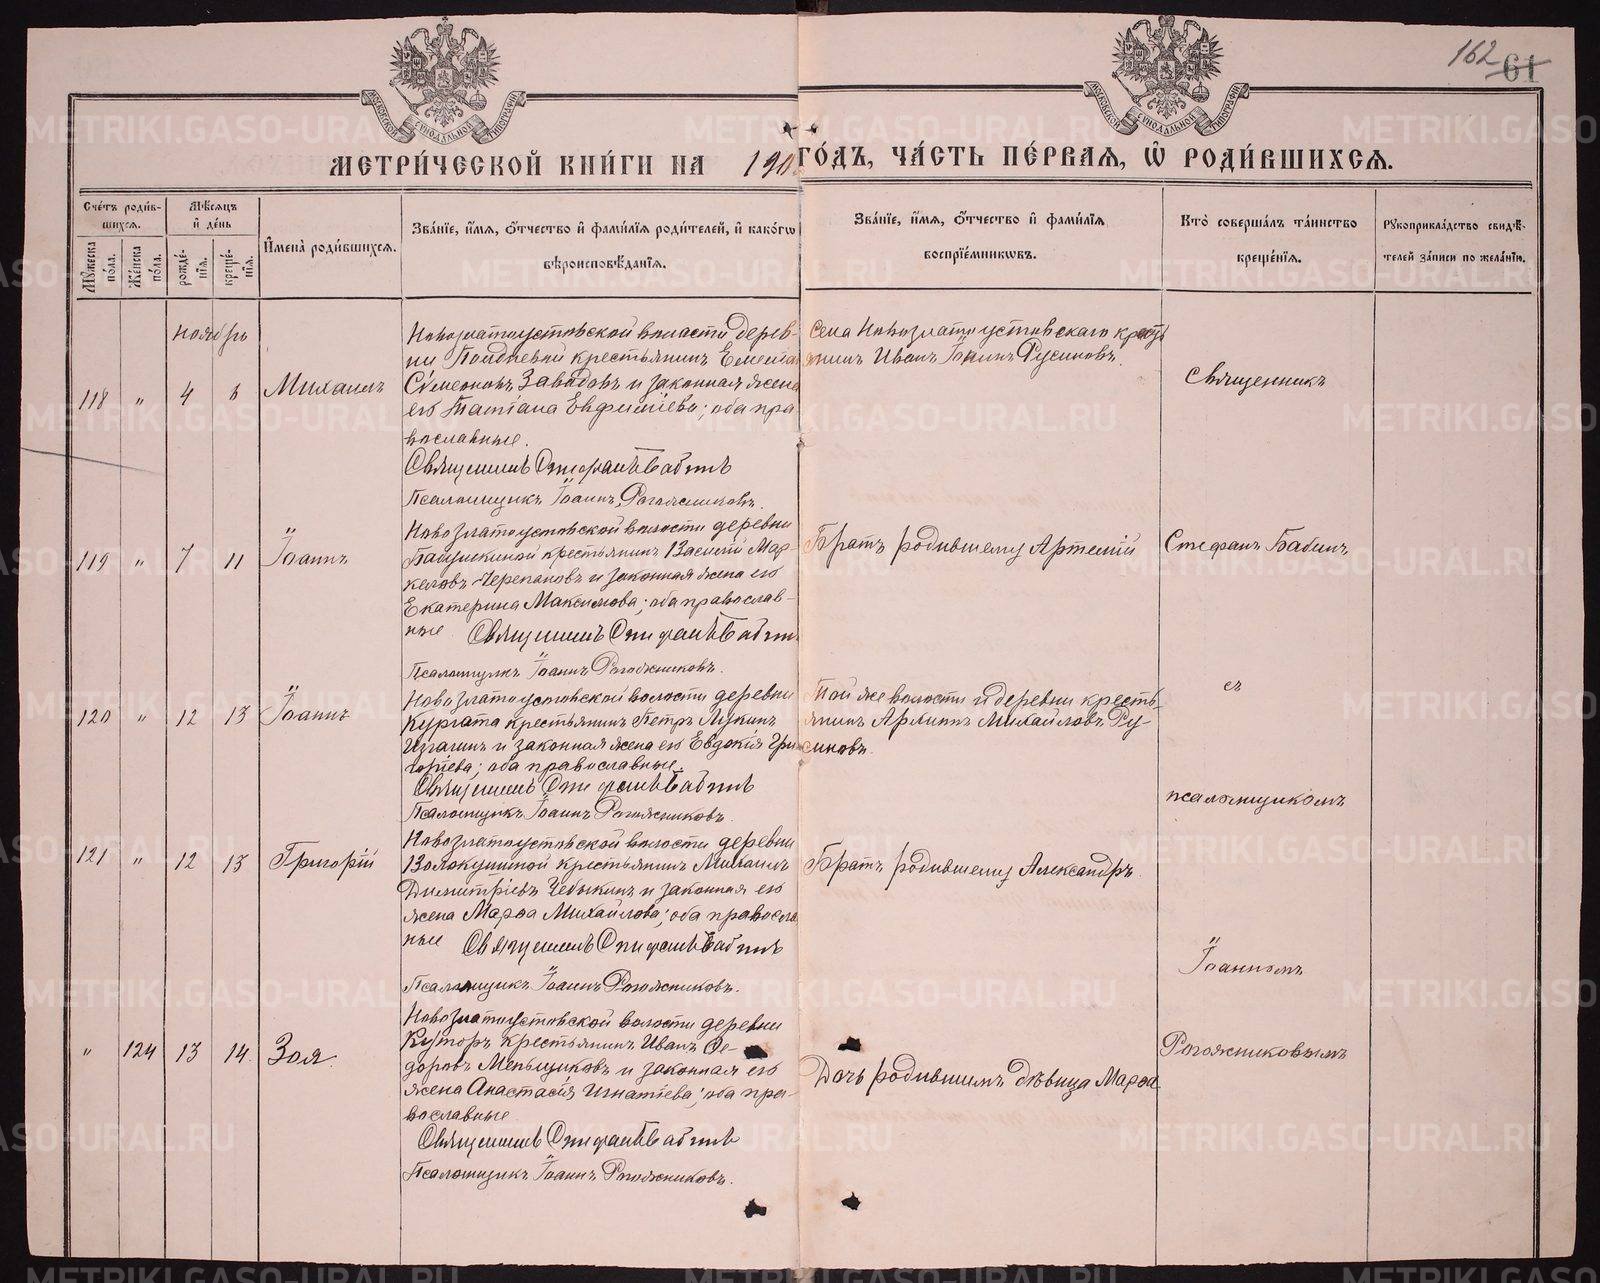 162 61
МОСКОВСКОЙ СѴНОДАЛЬНОЙ ТИПОГРАФІИ
МОСКОВСКОЙ СѴНОДАЛЬНОЙ ТИПОГРАФІИ
МЕТРИ́ЧЕСКОЙ КНИ́ГИ НА 190 ГО́ДЪ, ЧА́СТЬ ПЕ́РВАЯ, Ѡ҆ РОДИ́ВШИХСЯ.
Сче́тъ роди́в-
шихся.
Мꙋ́жеска по́ла.
Же́нска по́ла.
Мѣ́сяцъ и҆ де́нь
рожде́-нїя.
креще́-нїя.
И҆мена̀ роди́вшихся.
Зва́нїе, и҆́мя, ѻ҆́тчество и҆ фами́лїя роди́телей, и҆ како́гѡ
вѣроисповѣ́данїя.
Зва́нїе, и҆́мя, ѻ҆́тчество и҆ фами́лїя
воспрїе́мникѡвъ.
Кто̀ соверша́лъ та́инство
креще́нїя.
Рꙋкоприкла́дство свидѣ́-
телей за́писи по жела́нїю.
ноябрь
118 " 4 6 Михаилъ
Новозлатоустовской волости дерев-
ни Полдневой крестьянинъ
Сѵмеоновъ Завадовъ и законная жена
его Татіана Евфиміева; оба пра-
вославные.
Священникъ Стефанъ Бабинъ
Псаломщикъ Іоаннъ Рогожниковъ.
Села Новозлатоустовскаго кресть-
янинъ Иванъ Іоанновъ Русиновъ.
Священникъ
119 " 7 11 Іоаннъ
Новозлатоустовской волости деревни
крестьянинъ Василій Мар-
келовъ Черепановъ и законная жена его
Екатерина Максимова; оба православ-
ные Священникъ Стефанъ Бабинъ
Псаломщикъ Іоаннъ Рогожниковъ.
Братъ родившемуся Артемій
Стефанъ Бабинъ
120 " 12 13 Іоаннъ
Новозлатоустовской волости деревни
Кургата крестьянинъ Петръ Лукинъ
и законная жена его Евдокія Гри-
горіева; оба православные.
Священникъ Стефанъ Бабинъ
Псаломщикъ Іоаннъ Рогожниковъ.
Той же волости и деревни кресть-
янинъ Михайловъ Ру-
синовъ.
съ
псаломщикомъ
121 " 12 13 Григорій
Новозлатоустовской волости деревни
Волокушиной крестьянинъ Михаилъ
Димитріевъ Чебыкинъ и законная его
жена Марѳа Михайлова; оба православ
ные Священникъ Стефанъ Бабинъ
Псаломщикъ Іоаннъ Рогожниковъ.
Братъ родившемуся Александръ.
Іоанномъ
" 124 13 14 Зоя.
Новозлатоустовской волости деревни
Куторъ крестьянинъ Иванъ Ѳе-
доровъ Меньщиковъ и законная его
жена Анастасія Игнатіева; оба пра-
вославные
Священникъ Стефанъ Бабинъ
Псаломщикъ Іоаннъ Рогожниковъ.
Дочь родившимъ дѣвица Марѳа
Рогожниковымъ
METRIKI.GASO-URAL.RU